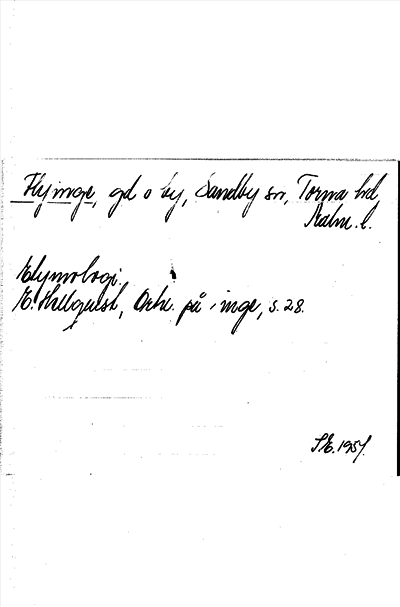 Flyinge, gd o by, Sandby sn, Torna hd,
Malm. l.
Etymologi.
E. Hellquist, Ortn. på -inge, s. 28.
1957.